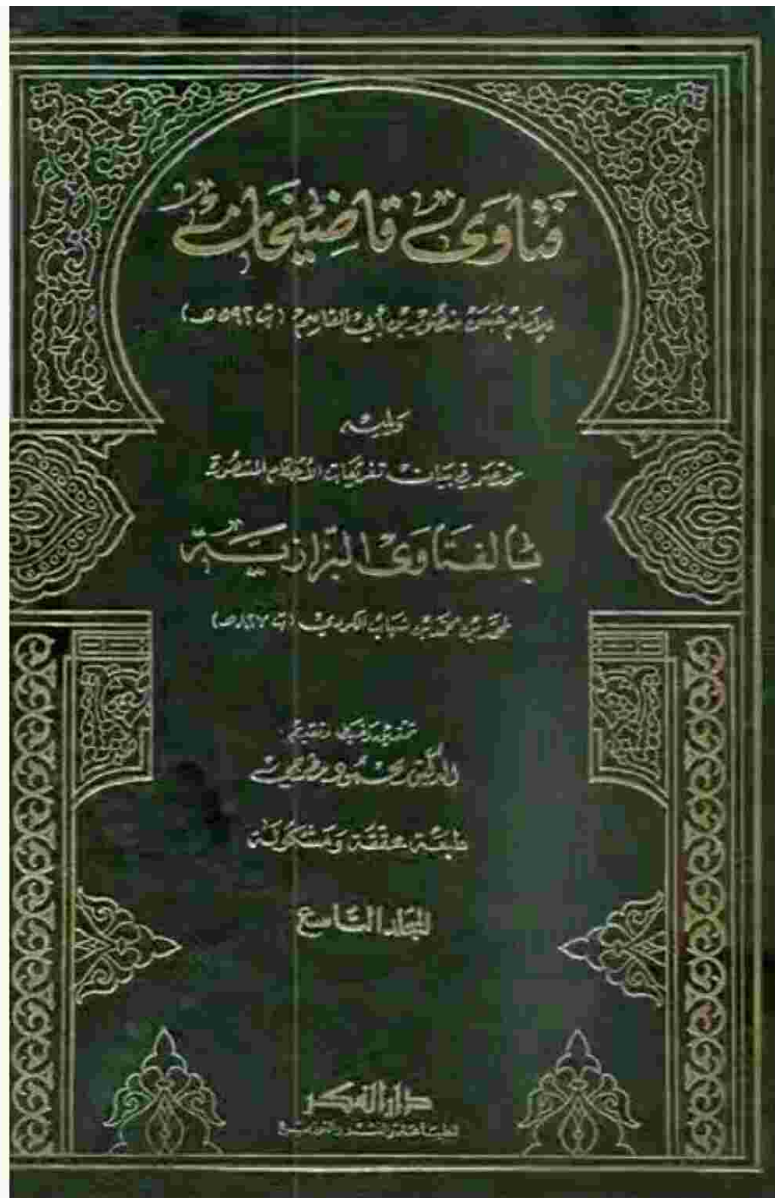 فتاوى قاضيخان
للإمام حسن منصور بن أبي القاسم (ت ٥٩٢هـ)
ويليه
في بيان تعريفات الأحكام
بالفتاوى البزازية
محمد بن محمد بن شهاب الكردي (ت ٨٢٧هـ)
وتقديم
الدكتور محمود مطرجي
طبعة محققة ومشكولة
المجلد التاسع
دار الفكر
للطباعة والنشر والتوزيع